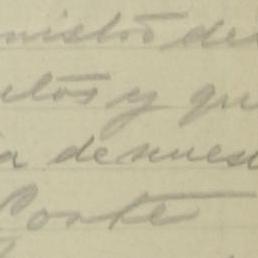 nistó de
utos y qu
a denues
Corte